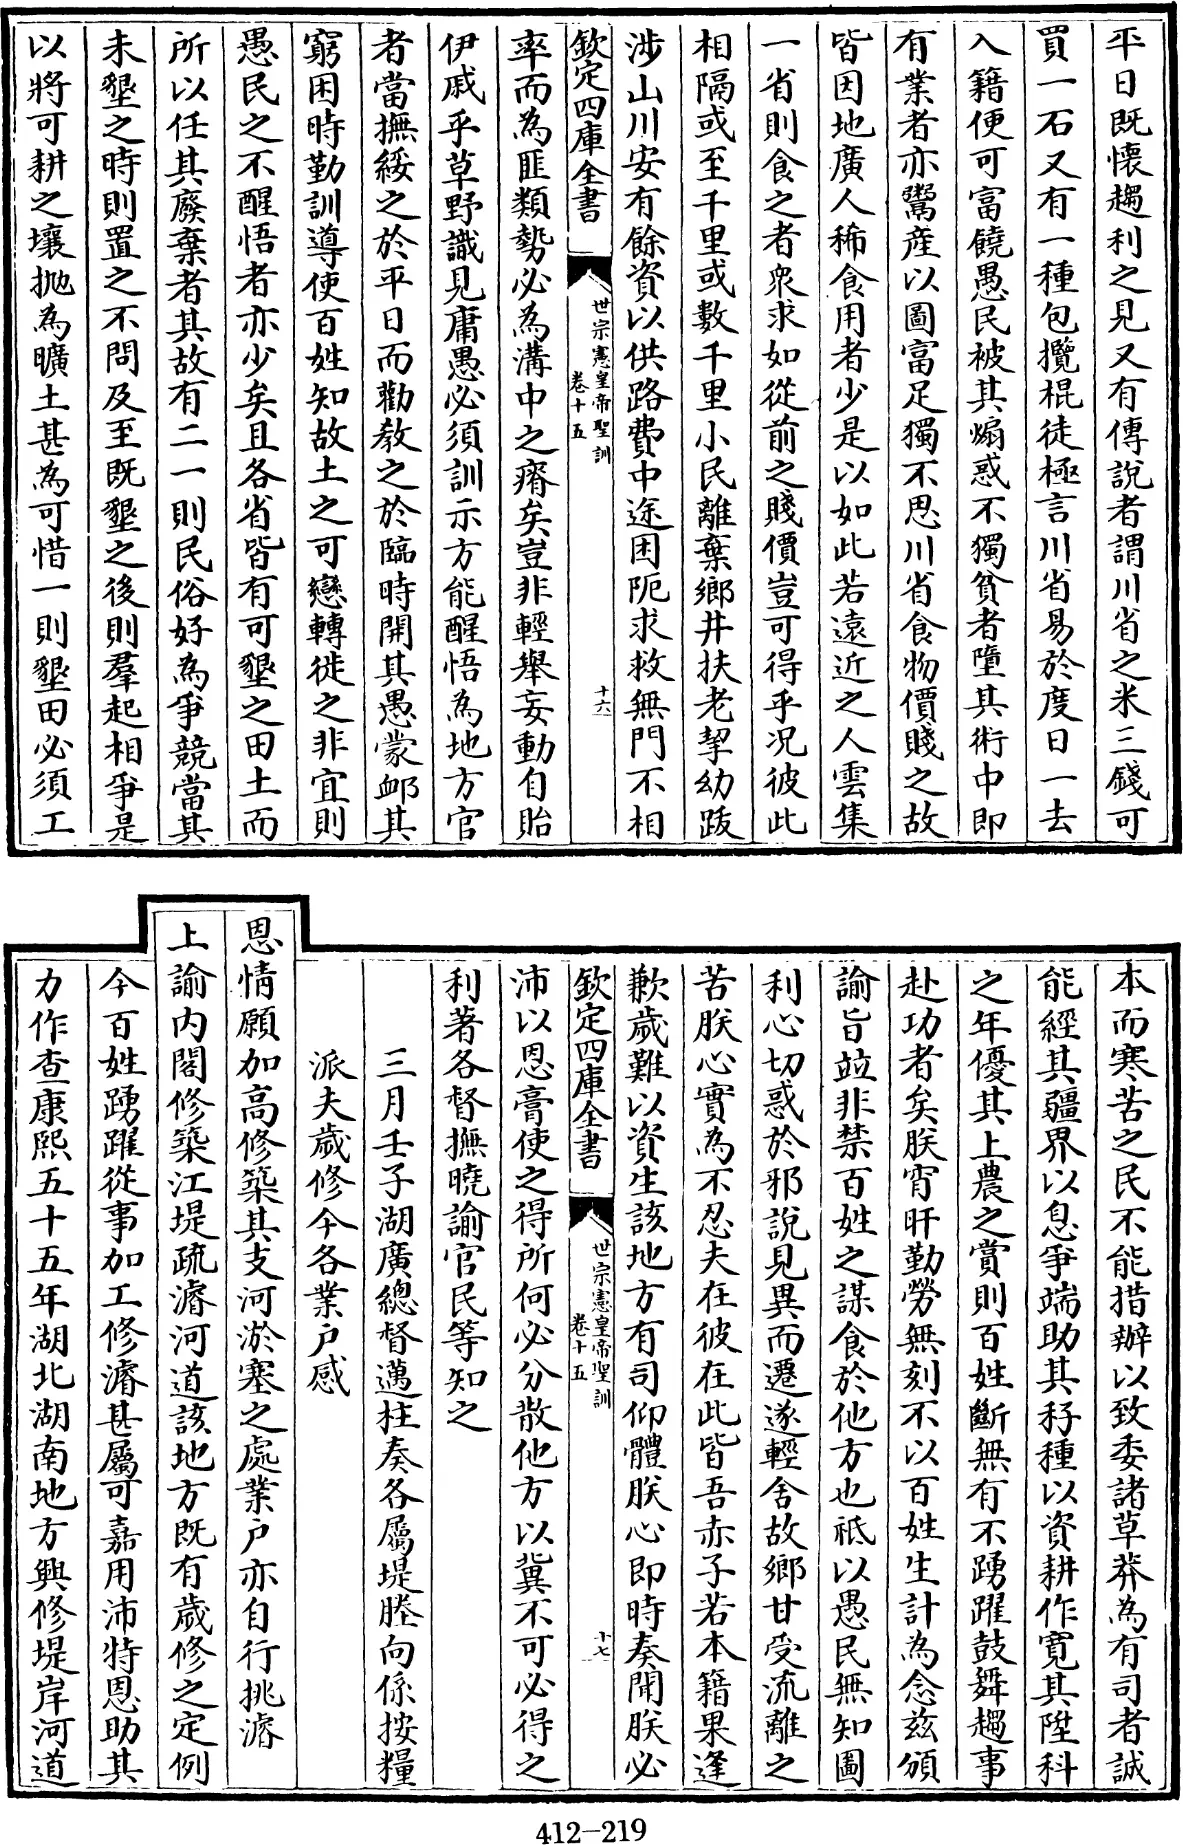 平日既懷趨利之見又有傳說者謂川省之米三錢可
買一石又有一種包攬棍徒極言川省易於度日一去
入籍便可富饒愚民被其煽惑不獨貧者墮其術中即
有業者亦鬻產以圖富足獨不思川省食物價賤之故
皆因地廣人稀食用者少是以如此若遠近之人雲集
一省則食之者衆求如從前之賤價豈可得乎况彼此
相隔或至千里或數千里小民離棄鄉井扶老挈幼跋
涉山川安有餘資以供路費中途困阨求救無門不相
欽定四庫全書
世宗憲皇帝聖訓
卷十五
十六
率而為匪類勢必為溝中之瘠矣豈非輕舉妄動自貽
伊戚乎草野識見庸愚必須訓示方能醒悟為地方官
者當撫綏之於平日而勸教之於臨時開其愚蒙卹其
窮困時勤訓導使百姓知故土之可戀轉徙之非宜則
愚民之不醒悟者亦少矣且各省皆有可墾之田土而
所以任其廢棄者其故有二一則民俗好為爭競當其
未墾之時則置之不問及至既墾之後則羣起相爭是
以將可耕之壤抛為曠土甚為可惜一則墾田必須工
本而寒苦之民不能措辦以致委諸草莽為有司者誠
能經其疆界以息爭端助其籽種以資耕作寬其陞科
之年優其上農之賞則百姓斷無有不踴躍鼓舞趨事
赴功者矣朕宵旰勤勞無刻不以百姓生計為念茲頒
諭旨竝非禁百姓之謀食於他方也祗以愚民無知圖
利心切惑於邪說見異而遷遂輕舍故鄉甘受流離之
苦朕心實為不忍夫在彼在此皆吾赤子若本籍果逢
歉歲難以資生該地方有司仰體朕心即時奏聞朕必
欽定四庫全書
世宗憲皇帝聖訓
卷十五
十七
沛以恩膏使之得所何必分散他方以冀不可必得之
利著各督撫曉諭官民等知之
三月壬子湖廣總督邁柱奏各屬堤塍向係按糧
派夫歲修今各業户感
恩情願加高修築其支河淤塞之處業户亦自行挑濬
上諭内閣修築江堤疏濬河道該地方既有歲修之定例
今百姓踴躍從事加工修濬甚屬可嘉用沛特恩助其
力作查康熙五十五年湖北湖南地方興修堤岸河道
412-219